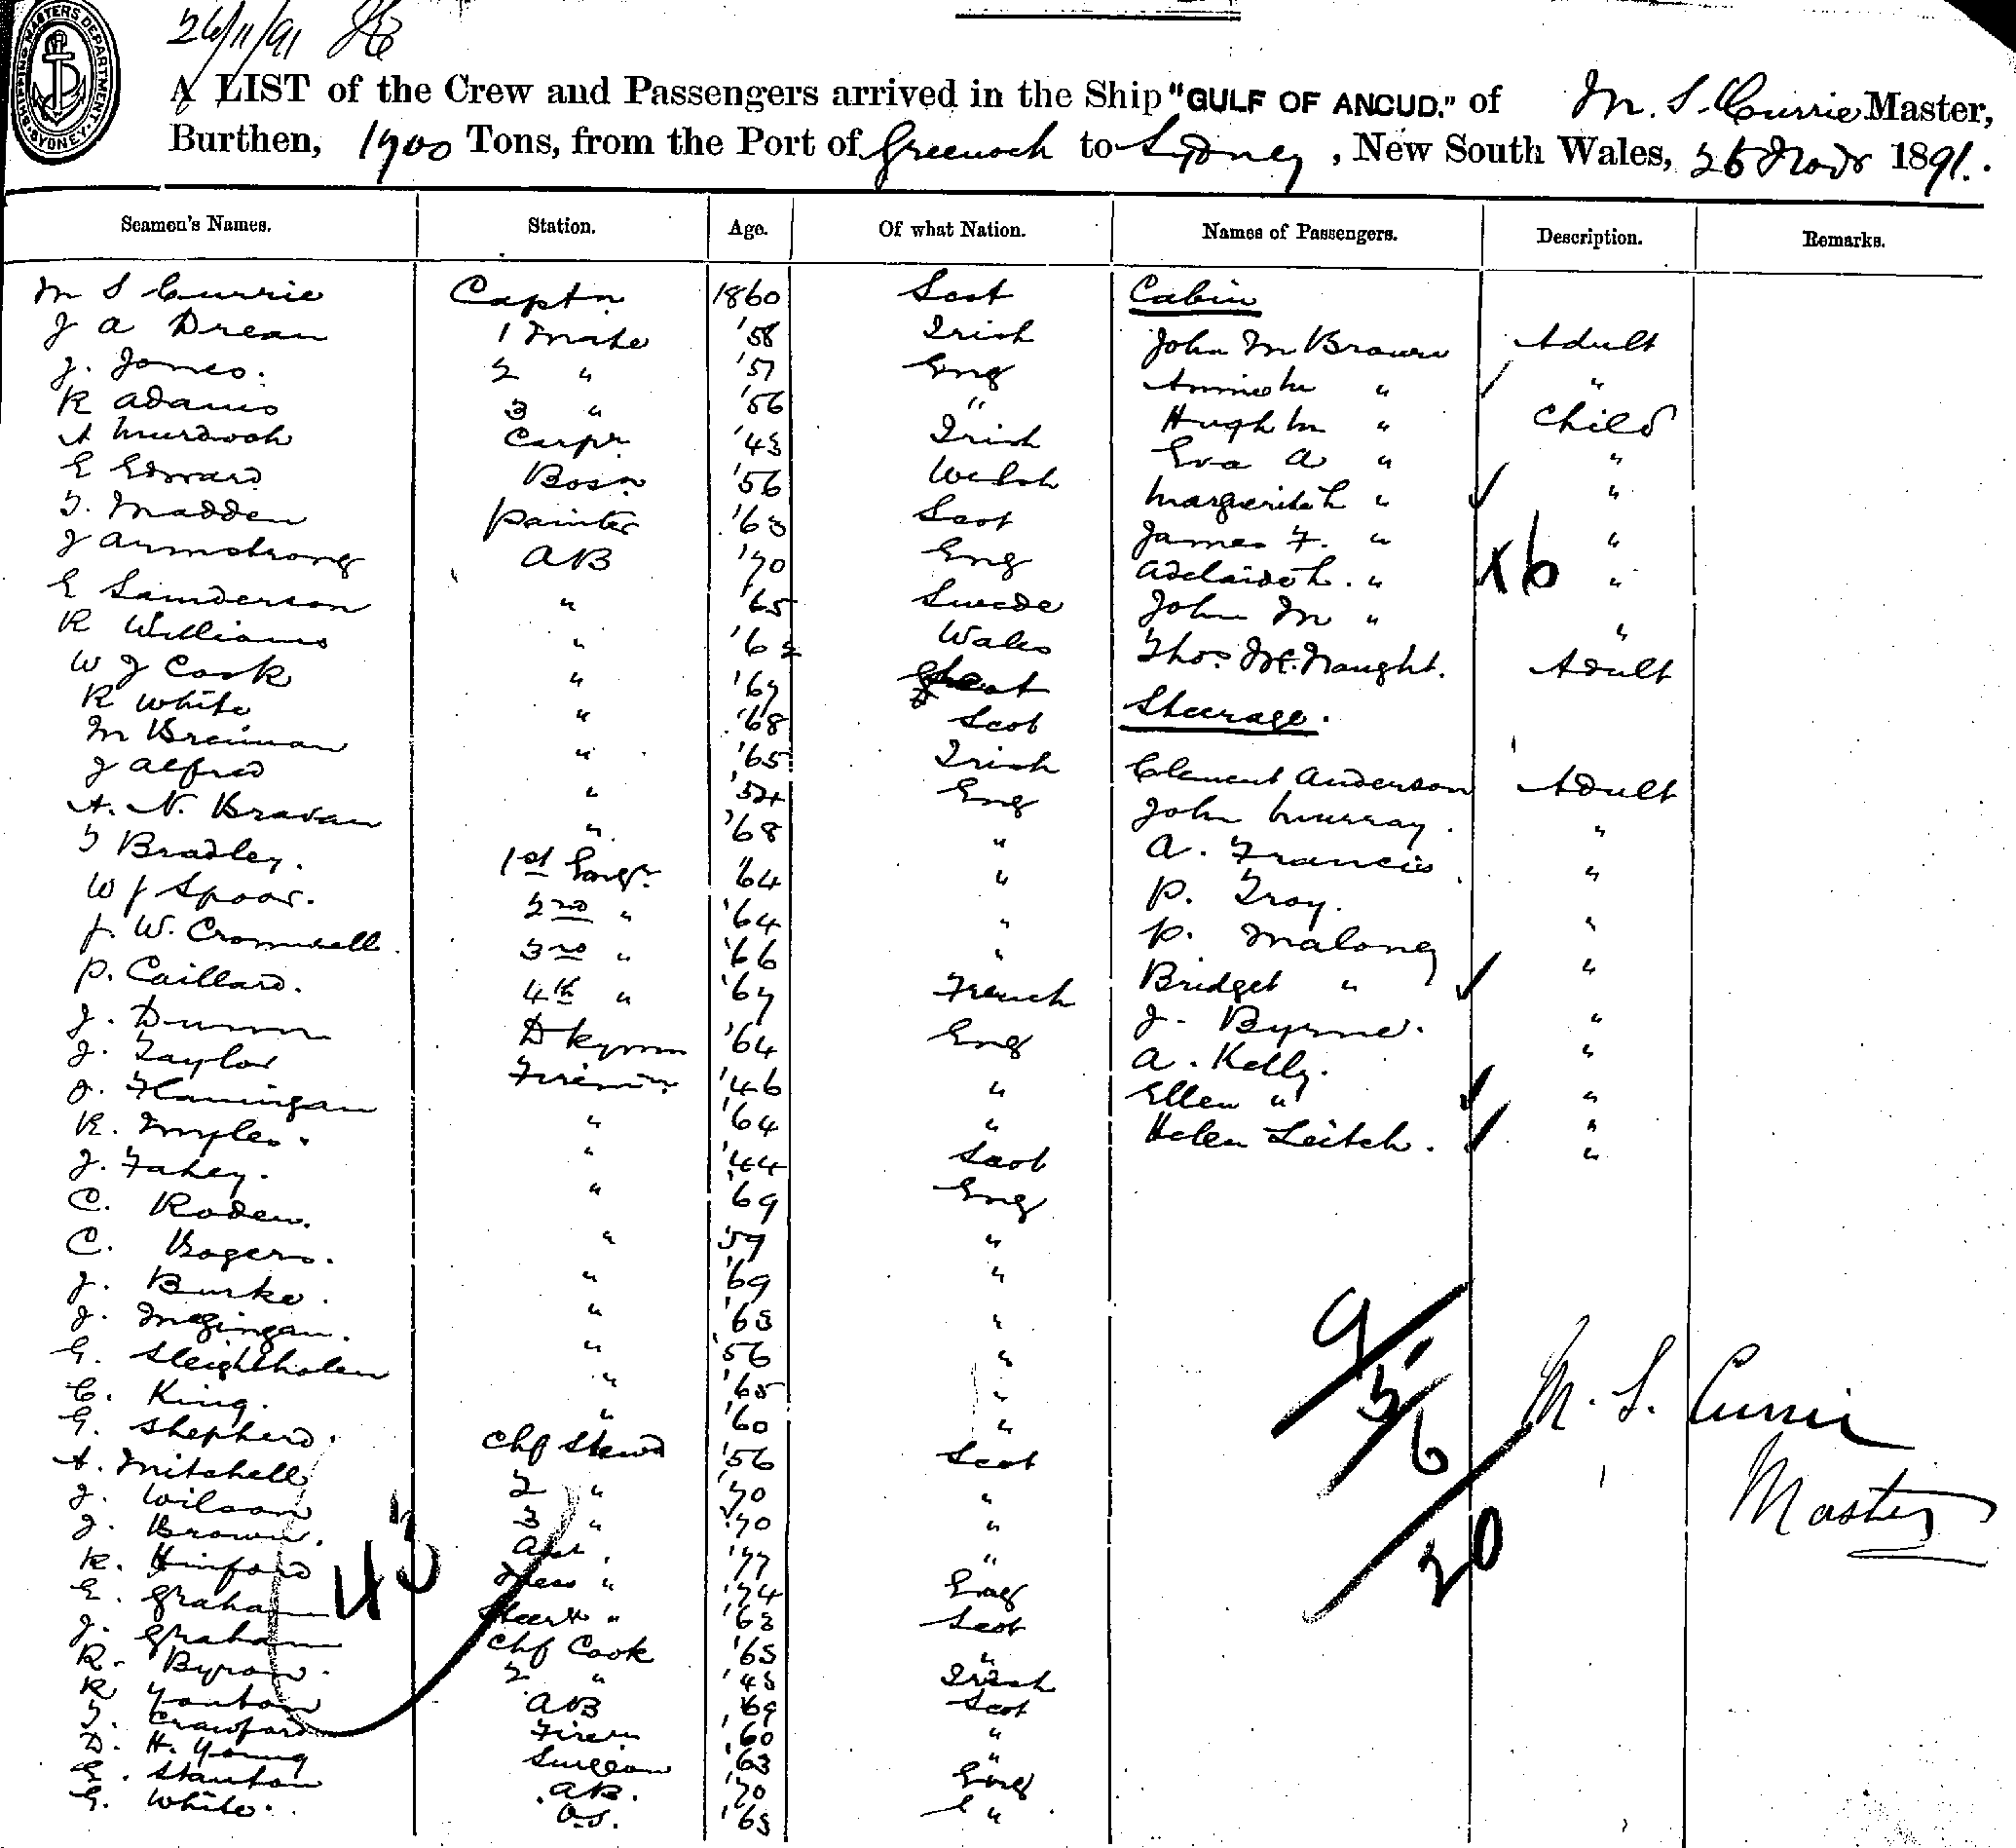 SHIPPING MASTERS DEPARTMENT. SYDNEY
26/11/91
A LIST of the Crew and Passengers arrived in the Ship "GULF OF ANCUD." of M. S. Currie Master,
Burthen, 1900 Tons, from the Port of Greenock to Sydney, New South Wales, 26 Novr 1891.
Seamen's Names. Station. Age. Of what Nation. Names of Passengers. Description. Remarks.
M S Currie Captn 1860 Scot Cabin
J A Drean 1 Mate '58 Irish John M Brown Adult
J. Jones. 2 " '57 Eng Annie M " "
R Adams 3 " '56 " Hugh M " Child
A Murdoch Carpr '43 Irish Eva A " "
E Edward Bosn '56 Welsh Marguerite L " "
T. Madden Painter '63 Scot James F. " "
J Armstrong AB '70 Eng Adelaide L. " x6 "
E Sanderson " '65 Swede John M " "
R Williams " '62 Wales Thos McNaught. Adult
W J Cook " '67 Scot
R White " '68 Scot Steerage.
M Brennan " '65 Irish Clement Anderson Adult
J Alfred " '54 Eng John Murray. "
A. N. Bravan " '68 " A. Francis "
T Bradley. 1st Engr. '64 " P. Troy. "
W J Spoor. 2nd " '64 " P. Maloney "
J. W. Cromwell 3rd " '66 " Bridget " "
P. Caillard. 4th " '67 French J. Byrne. "
J. Dunn Dkymn '64 Eng A. Kelly. "
J. Taylor Firemn '46 " Ellen " "
J. Flannigan " '64 " Helen Leitch. "
R. Myles. " '44 Scot
J. Fahey. " '69 Eng
C. Roden. " '59 "
C. Rogers. " '69 "
J. Burke. " '63 "
J. McGingan. " '56 "
G. Sleightholm " '65 "
C. King. " '60 "
G. Shepherd. Chf Stewd '56 Scot
A. Mitchell 2 " '70 "
J. Wilson 3 " '70 "
J. Brown. Asst. '77 "
R. Hinford Mess " '74 Eng
E. Graham Steer " '63 Scot
J. Graham Chf Cook '65 "
R. Byron. 2 " '45 Irish
R AB '69 Scot
T. Crawford Firem '60 "
D. H. Young Surgeon '63 "
E. Stanton AB. '70 Eng
G. White. O.S. '65 "
43
9
5
6
20
M. S. Currie
Master